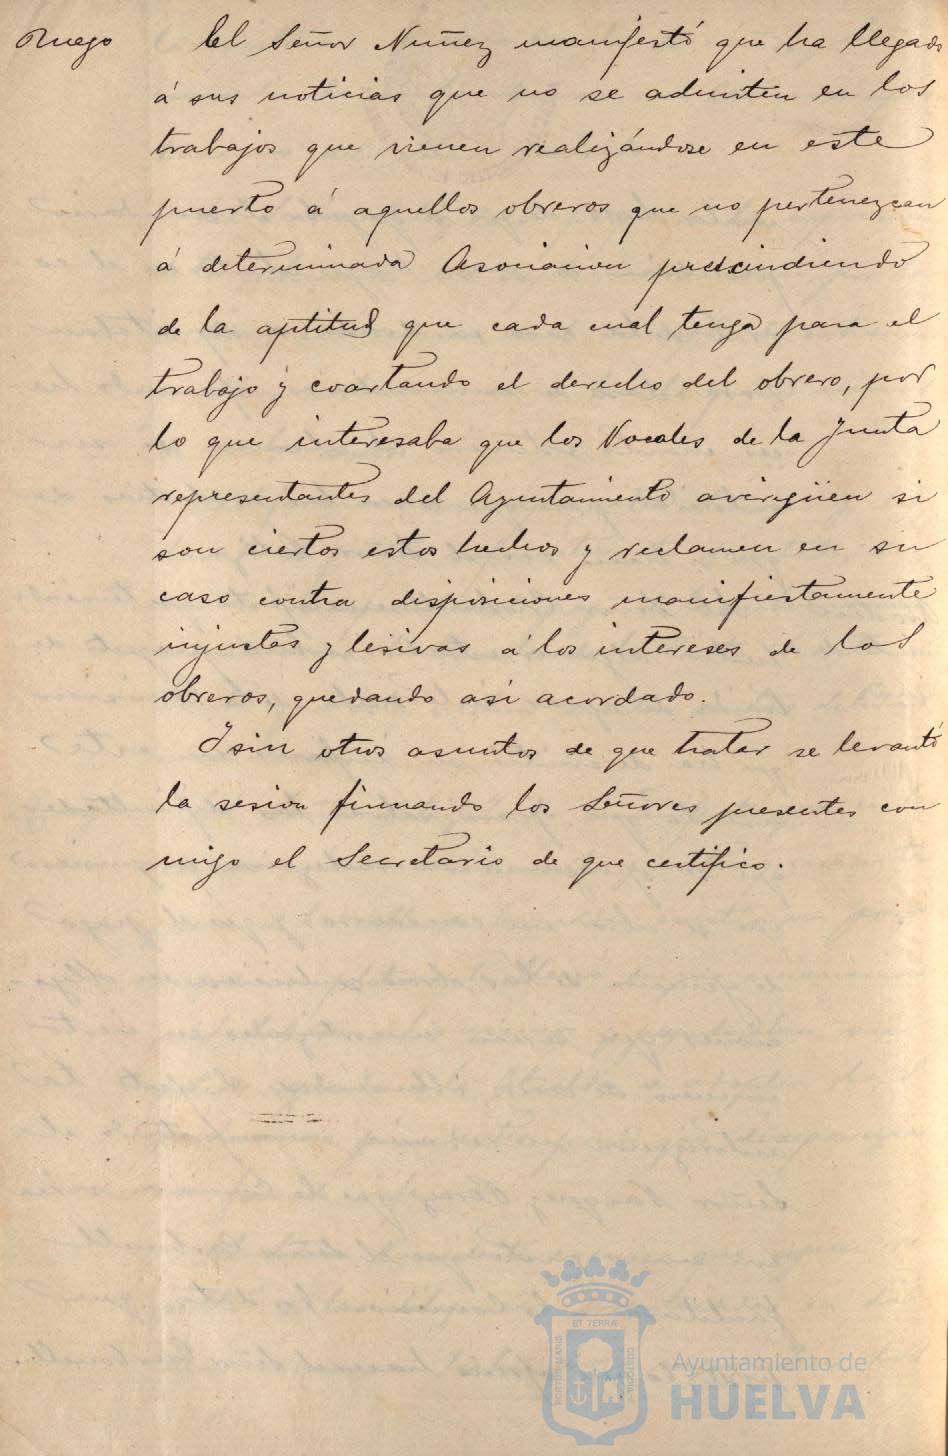 Ruego
El Señor Nuñez manifestó que ha llegado
á sus noticias que no se admiten en los
trabajos que vienen realizándose en este
puerto á aquellos obreros que no pertenezcan
á determinada Asociacion prescindiendo
de la aptitud que cada cual tenga para el
trabajo y coartando el derecho del obrero, por
lo que interesaba que los Vocales de la Junta
representantes del Ayuntamiento averigüen si
son ciertos estos hechos y reclamen en su
caso contra disposiciones manifiestamente
injustas y lesivas á los intereses de los
obreros, quedando asi acordado.
Y sin otros asuntos de que tratar se levantó
la sesion firmando los Señores presentes con
migo el Secretario de que certifico.
ET TERRA
Ayuntamiento de
HUELVA